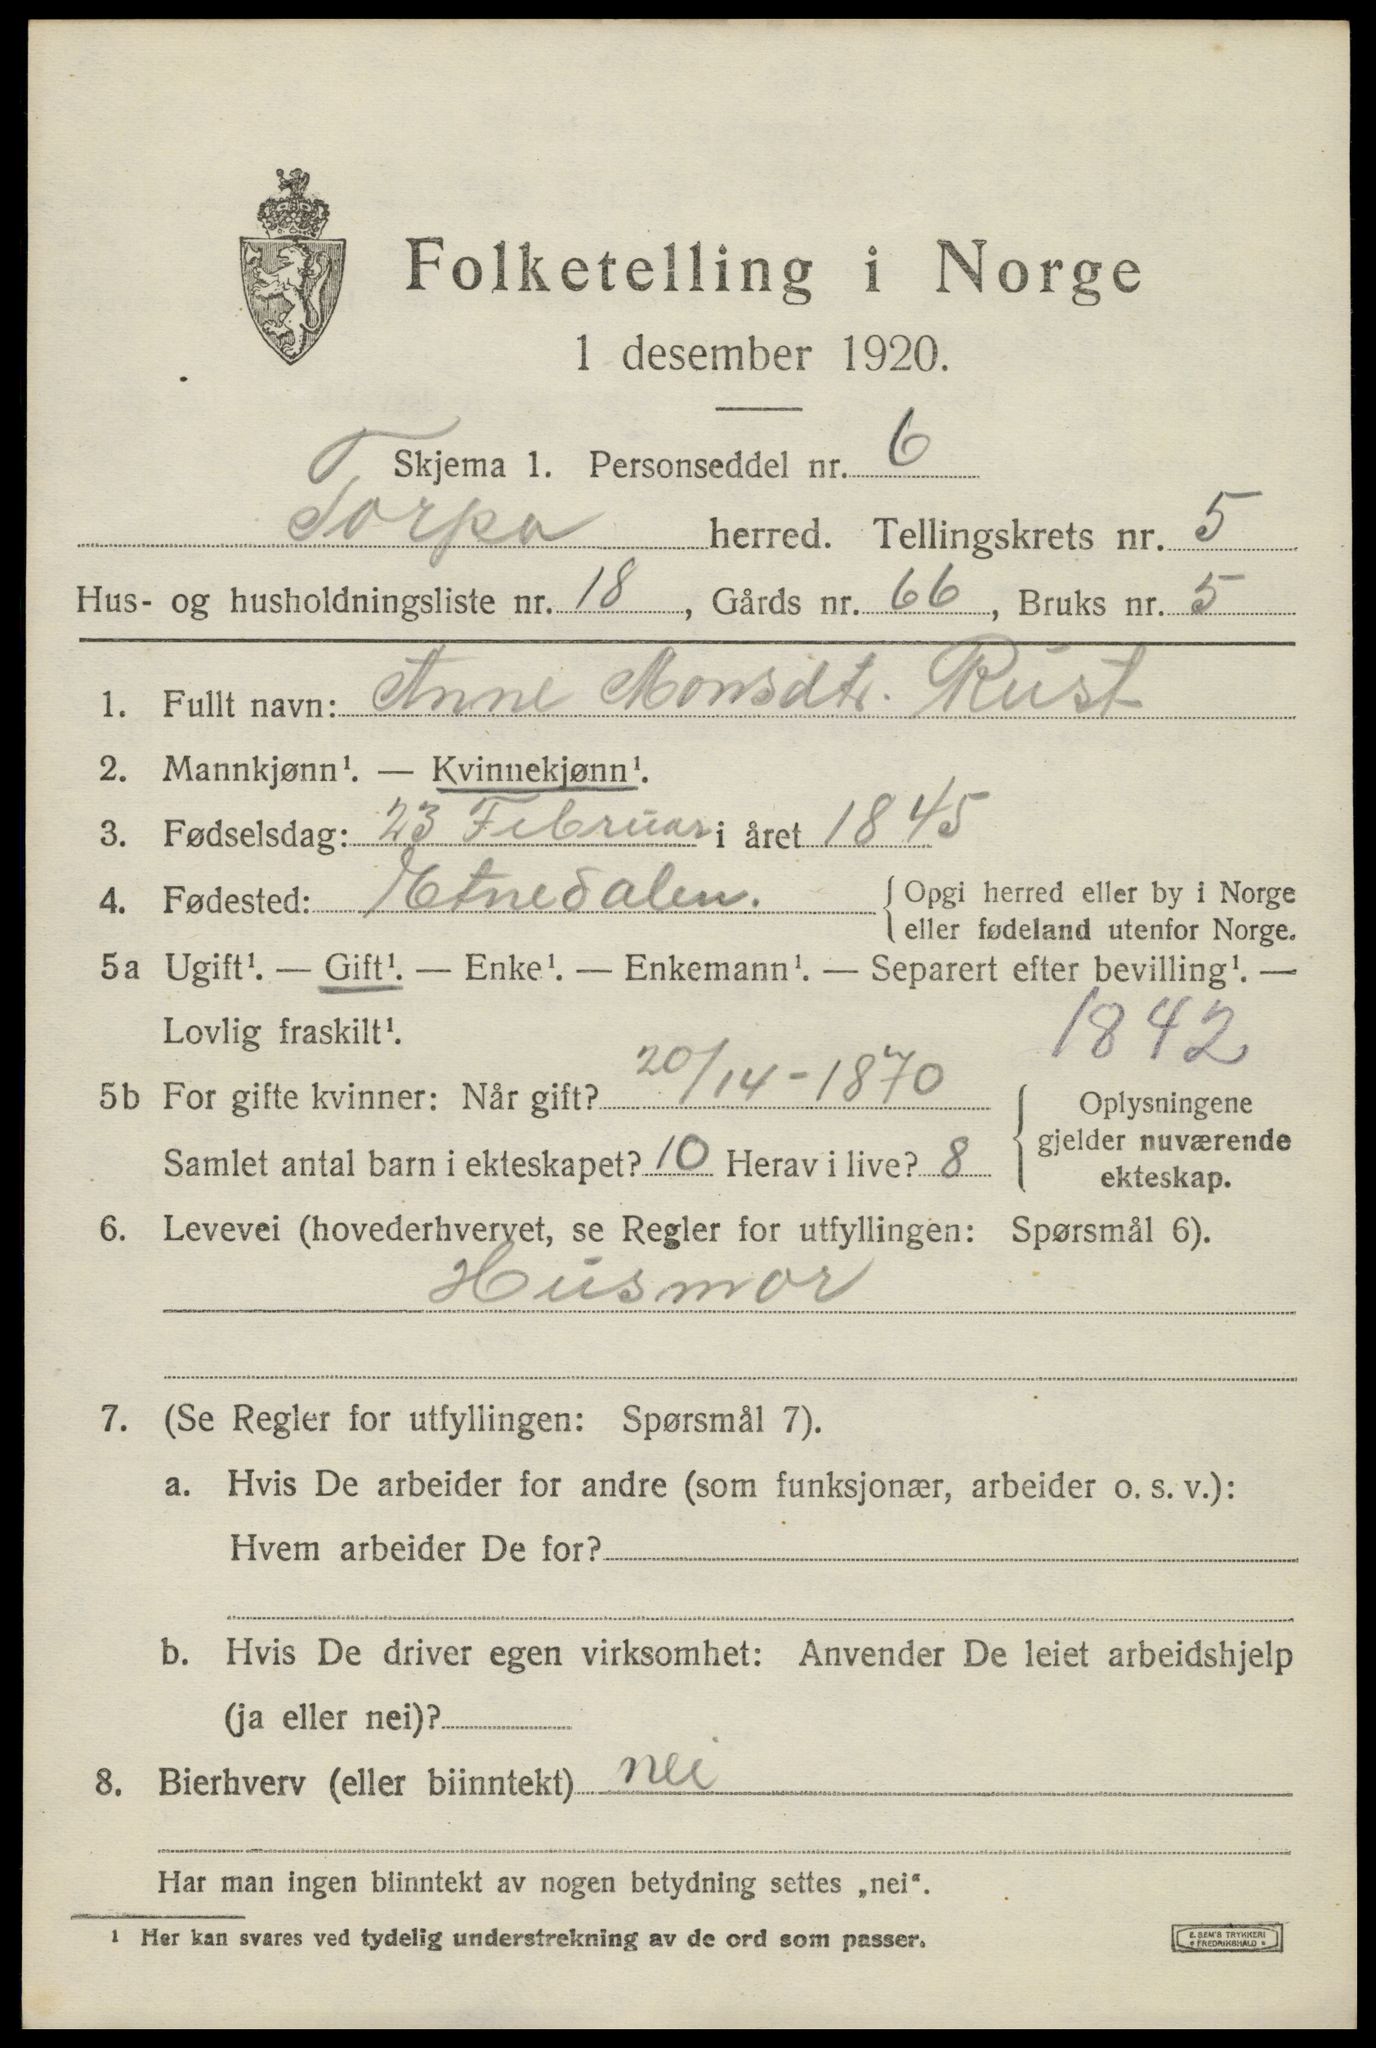 Folketelling i Norge
1 desember 1920.
Skjema 1. Personseddel nr. 6
Torpa herred. Tellingskrets nr. 5
Hus- og husholdningsliste nr. 18, Gårds nr. 66, Bruks nr. 5
1. Fullt navn: Anne Monsdtr. Rust
2. Mannkjønn¹. — Kvinnekjønn¹.
3. Fødselsdag: 23 Februar i året 1845
4. Fødested: Etnedalen. { Opgi herred eller by i Norge
eller fødeland utenfor Norge.
5a Ugift¹. — Gift¹. — Enke¹. — Enkemann¹. — Separert efter bevilling¹. —
Lovlig fraskilt¹. 1842
5b For gifte kvinner: Når gift? 20/14-1870
Samlet antal barn i ekteskapet? 10 Herav i live? 8
Oplysningene
gjelder nuværende
ekteskap.
6. Levevei (hovederhvervet, se Regler for utfyllingen: Spørsmål 6).
Husmor
7. (Se Regler for utfyllingen: Spørsmål 7).
a. Hvis De arbeider for andre (som funksjonær, arbeider o. s. v.):
Hvem arbeider De for?
b. Hvis De driver egen virksomhet: Anvender De leiet arbeidshjelp
(ja eller nei)?
8. Bierhverv (eller biinntekt) nei
Har man ingen biinntekt av nogen betydning settes „nei“.
¹ Her kan svares ved tydelig understrekning av de ord som passer.
E. SEM'S TRYKKERI
* FREDRIKSHALD *